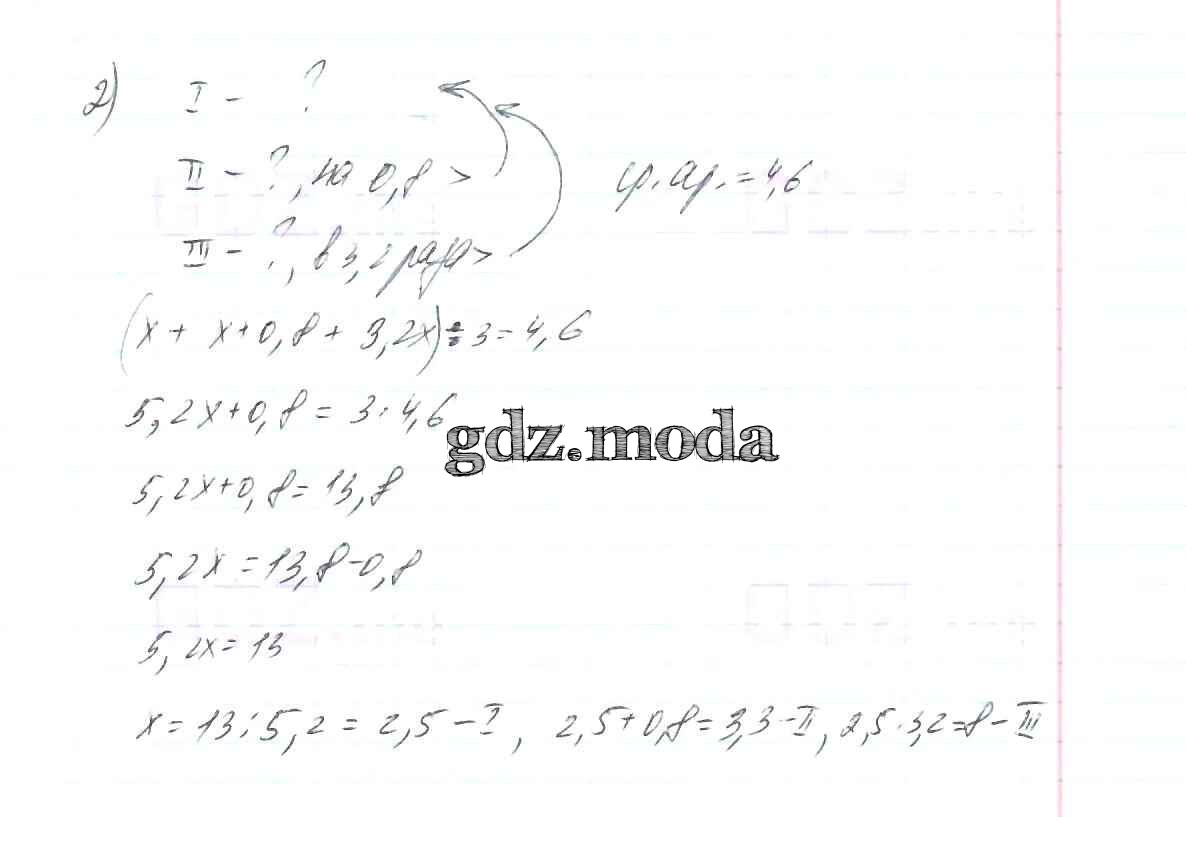 2) I - ?
II - ?, на 0,8 > ср. ар. = 4,6
III - ?, в 3,2 раза >
(x + x + 0,8 + 3,2x) ÷ 3 = 4,6
5,2x + 0,8 = 3 · 4,6
gdz.moda
5,2x + 0,8 = 13,8
5,2x = 13,8 - 0,8
5,2x = 13
x = 13 : 5,2 = 2,5 - I, 2,5 + 0,8 = 3,3 - II, 2,5 · 3,2 = 8 - III